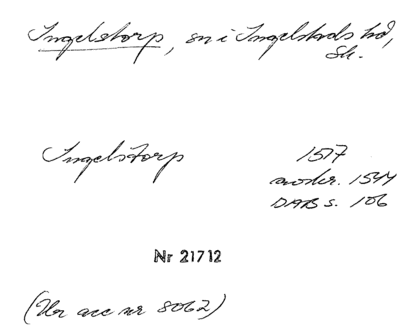 Ingelstorp, sn i Ingelstads hd,
Sk.
Ingelstorp 1517
avskr. 1544
DAB s. 106
Nr 21712
(Ur acc nr 8062)